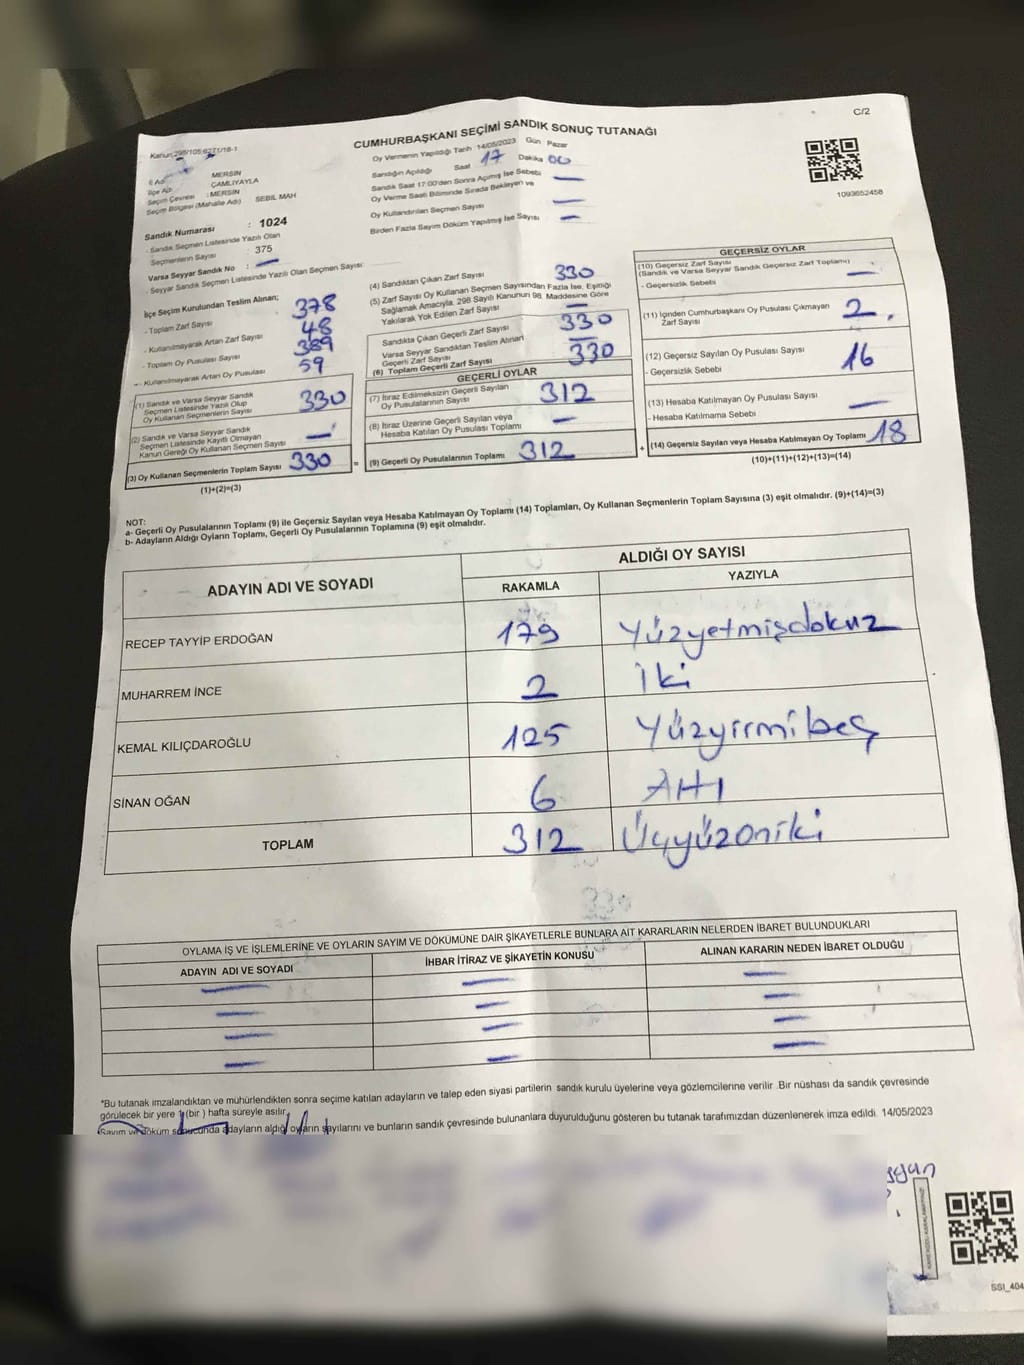 C/2
CUMHURBAŞKANI SEÇİMİ SANDIK SONUÇ TUTANAĞI
Kanun:298/105,6271/18-1
Oy Vermenin Yapıldığı Tarih 14/05/2023 Gün Pazar
Sandığın Açıldığı Saat 17 Dakika 00
Sandık Saat 17:00'den Sonra Açmış İse Sebebi —
Oy Verme Saati Bitiminde Sırada Bekleyen ve
Oy Kullandırılan Seçmen Sayısı —
Birden Fazla Sayım Döküm Yapılmış İse Sayısı —
1093652458
İl Adı MERSİN
İlçe Adı ÇAMLIYAYLA
Seçim Çevresi : MERSİN
Seçim Bölgesi (Mahalle Adı) SEBİL MAH
Sandık Numarası : 1024
- Sandık Seçmen Listesinde Yazılı Olan
Seçmenlerin Sayısı : 375
Varsa Seyyar Sandık No : —
- Seyyar Sandık Seçmen Listesinde Yazılı Olan Seçmen Sayısı:
İlçe Seçim Kurulundan Teslim Alınan;
- Toplam Zarf Sayısı 378
- Kullanılmayarak Artan Zarf Sayısı 48
- Toplam Oy Pusulası Sayısı 389
- Kullanılmayarak Artan Oy Pusulası 59
(1) Sandık ve Varsa Seyyar Sandık
Seçmen Listesinde Yazılı Olup
Oy Kullanan Seçmenlerin Sayısı 330
(2) Sandık ve Varsa Seyyar Sandık
Seçmen Listesinde Kayıtlı Olmayan
Kanun Gereği Oy Kullanan Seçmen Sayısı —
(3) Oy Kullanan Seçmenlerin Toplam Sayısı 330
(1)+(2)=(3)
(4) Sandıktan Çıkan Zarf Sayısı 330
(5) Zarf Sayısı Oy Kullanan Seçmen Sayısından Fazla İse, Eşitliği
Sağlamak Amacıyla, 298 Sayılı Kanunun 98. Maddesine Göre
Yakılarak Yok Edilen Zarf Sayısı —
Sandıkta Çıkan Geçerli Zarf Sayısı 330
Varsa Seyyar Sandıktan Teslim Alınan
Geçerli Zarf Sayısı —
(6) Toplam Geçerli Zarf Sayısı 330
GEÇERLİ OYLAR
(7) İtiraz Edilmeksizin Geçerli Sayılan
Oy Pusulalarının Sayısı 312
(8) İtiraz Üzerine Geçerli Sayılan veya
Hesaba Katılan Oy Pusulası Toplamı —
= (9) Geçerli Oy Pusulalarının Toplamı 312
GEÇERSİZ OYLAR
(10) Geçersiz Zarf Sayısı
(Sandık ve Varsa Seyyar Sandık Geçersiz Zarf Toplamı) —
- Geçersizlik Sebebi
(11) İçinden Cumhurbaşkanı Oy Pusulası Çıkmayan
Zarf Sayısı 2
(12) Geçersiz Sayılan Oy Pusulası Sayısı 16
- Geçersizlik Sebebi
(13) Hesaba Katılmayan Oy Pusulası Sayısı —
- Hesaba Katılmama Sebebi
+ (14) Geçersiz Sayılan veya Hesaba Katılmayan Oy Toplamı 18
(10)+(11)+(12)+(13)=(14)
NOT:
a- Geçerli Oy Pusulalarının Toplamı (9) ile Geçersiz Sayılan veya Hesaba Katılmayan Oy Toplamı (14) Toplamları, Oy Kullanan Seçmenlerin Toplam Sayısına (3) eşit olmalıdır. (9)+(14)=(3)
b- Adayların Aldığı Oyların Toplamı, Geçerli Oy Pusulalarının Toplamına (9) eşit olmalıdır.
ADAYIN ADI VE SOYADI ALDIĞI OY SAYISI
RAKAMLA YAZIYLA
RECEP TAYYİP ERDOĞAN 179 Yüzyetmişdokuz
MUHARREM İNCE 2 İki
KEMAL KILIÇDAROĞLU 125 Yüzyirmibeş
SİNAN OĞAN 6 Altı
TOPLAM 312 Üçyüzoniki
OYLAMA İŞ VE İŞLEMLERİNE VE OYLARIN SAYIM VE DÖKÜMÜNE DAİR ŞİKAYETLERLE BUNLARA AİT KARARLARIN NELERDEN İBARET BULUNDUKLARI
ADAYIN ADI VE SOYADI İHBAR İTİRAZ VE ŞİKAYETİN KONUSU ALINAN KARARIN NEDEN İBARET OLDUĞU
— — —
— — —
— — —
— — —
*Bu tutanak imzalandıktan ve mühürlendikten sonra seçime katılan adayların ve talep eden siyasi partilerin sandık kurulu üyelerine veya gözlemcilerine verilir .Bir nüshası da sandık çevresinde
görülecek bir yere 1 (bir ) hafta süreyle asılır.
Sayım ve döküm sonucunda adayların aldığı oyların sayılarını ve bunların sandık çevresinde bulunanlara duyurulduğunu gösteren bu tutanak tarafımızdan düzenlenerek imza edildi. 14/05/2023
SSI_404